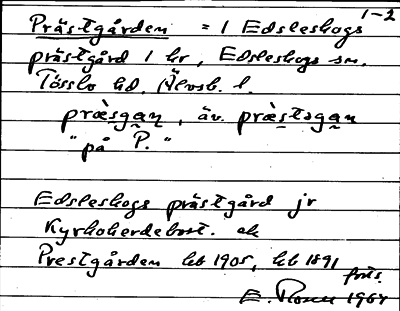 1-2
Prästgården = 1 Edsleskogs
prästgård 1 hr, Edsleskogs sn.
Tössbo hd. Älvsb. l.
præ̀sgan, äv. præ̀stəgan
"på P."
Edsleskogs prästgård jr
Kyrkoherdebost. ek
Prestgården hb 1905, hb 1891
forts.
E. 1964